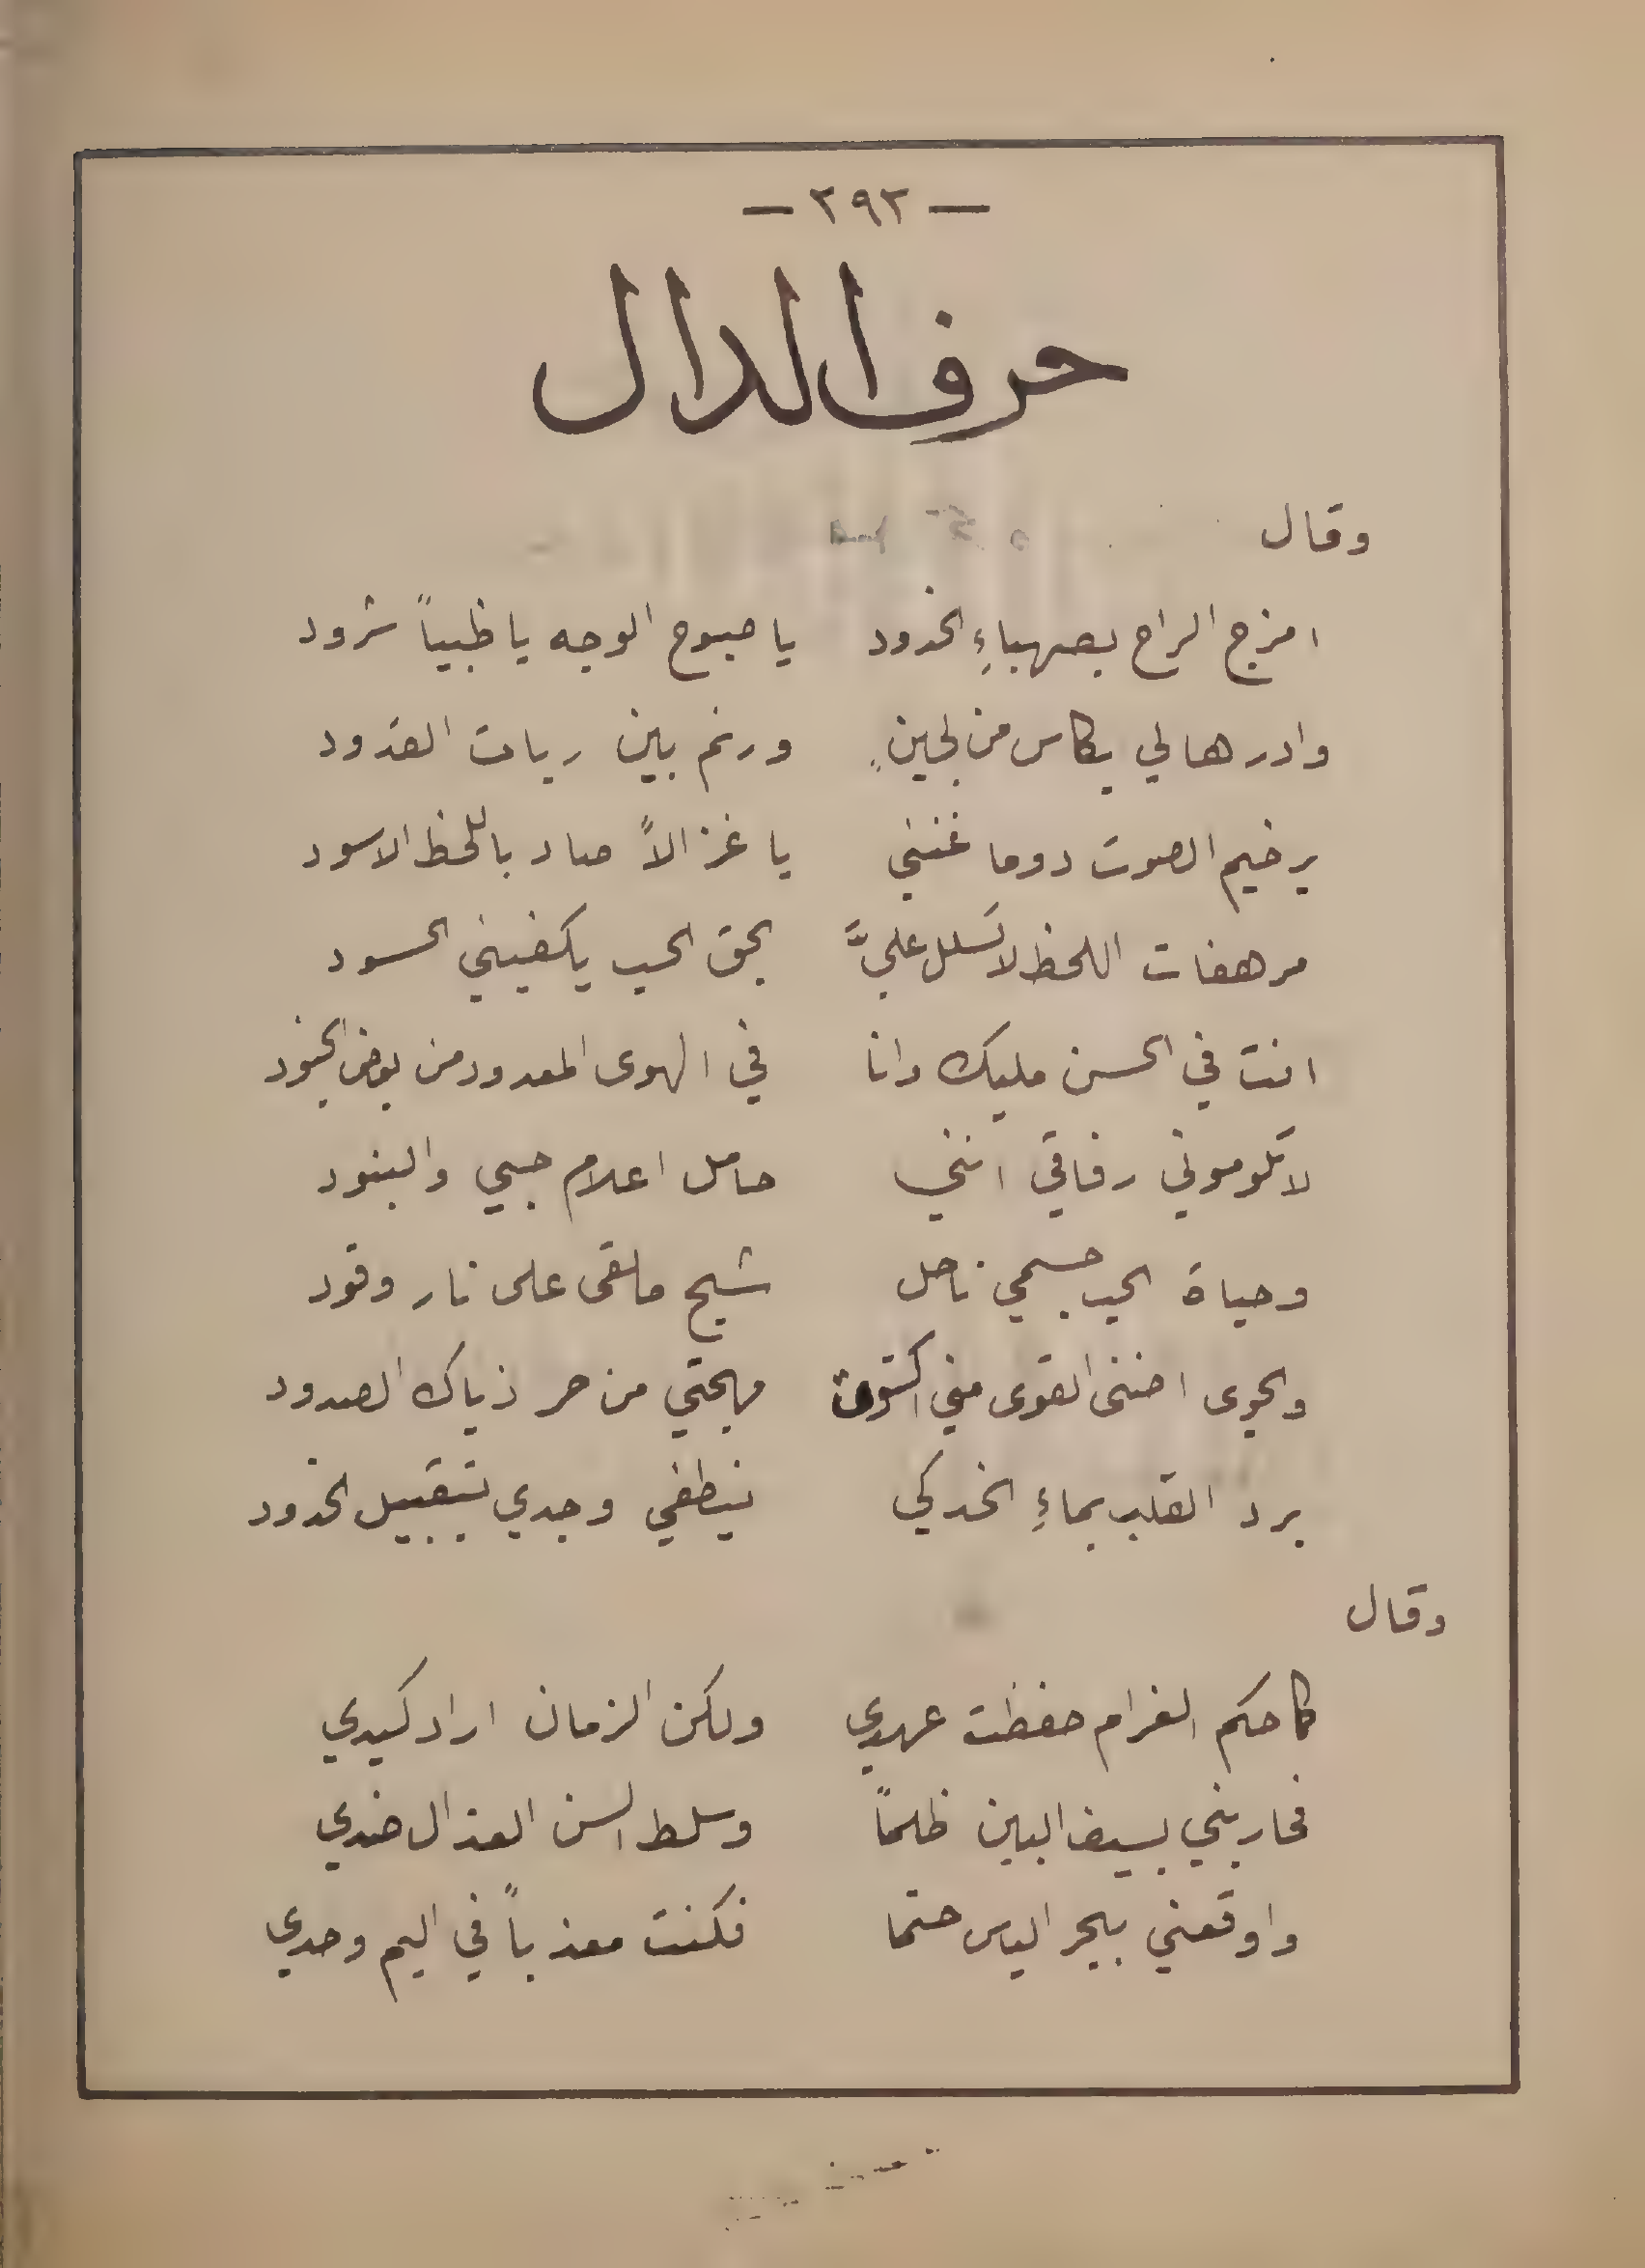 — ٢٩٢ —
حرف الدال
وقال
امزج الراح بصهباءِ الخدود يا صبوح الوجه يا ظبياً شرود
وادرها لي بكاس من لجينٍ ورنم بين ربات القدود
برخيم الصوت دوما غنني يا غزالاً صاد باللحظ الاسود
مرهفات اللحظ لا تسلل عليَّ بحق الحب يكفيني الحسود
انت في الحسن مليك وانا في الهوى المعدود من بعض الجنود
لا تلوموني رفاقي انني حامل اعلام حبي والبنود
وحياة الحب جسمي ناحل شبح ملقى على نار وقود
والجوى اضنى القوى مني اكتوت مهجتي من حر ذياك الصدود
برد القلب بماءِ الخد كي ينطفي وجدي بتقبيل الخدود
وقال
كما حكم الغرام حفظت عهدي ولكن الزمان اراد كيدي
فحاربني بسيف البين ظلماً وسلط السن العذال ضدي
واوقعني ببحر الياس حتما فكنت معذباً في اليم وحدي